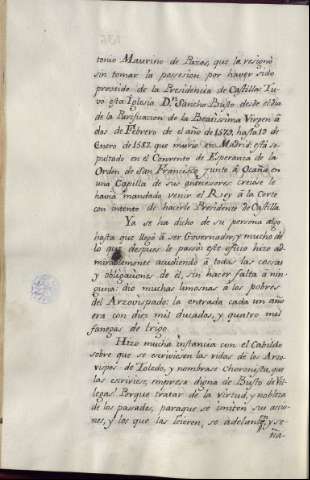 tonio Maurino de Pazos, que la resignó
sin tomar la possesion por haver sido
proveido de la Presidencia de Castilla: Tu-
vo esta Iglesia D.n Sancho Busto desde el dia
de la Purificacion de la Beatissima Virgen á
dos de Febrero de el año de 1579, hasta 12 de
Enero de 1582 que murio en Madrid: està se-
pultado en el Convento de Esperanza de la
Orden de San Francisco junto à Ocaña en
una Capilla de sus antecesores: creiase le
havia mandado venir el Rey à la Corte
con intento de hacerle Presidente de Castilla.
Ya se ha dicho de su persona algo
hasta que llegó à ser Governador, y mucho de
lo que despues le pasó: este oficio hizo ad-
mirablemente acudiendo à todas las cosas
y obligaciones de él, sin hacer falta à nin-
guna: dio muchas limosnas à los pobres
del Arzovispado: la entrada cada un año
era con diez mil ducados, y quatro mil
fanegas de trigo.
Hizo mucha instancia con el Cabildo
sobre que se escriviesen las vidas de los Arzo-
vispos de Toledo, y nombrase Choronista, que
las escriviese, empresa digna de Busto de Vil-
legas: Porque tratar de la virtud, y nobleza
de los pasados, paraque se imiten sus accio-
nes, y los que las leieren, se adelanten, y se
ña-